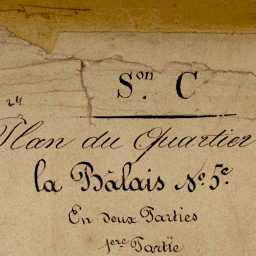 Son. C
24
Plan du Quartier
la Bâlais No. 5e.
En deux Parties
1ere. Partie